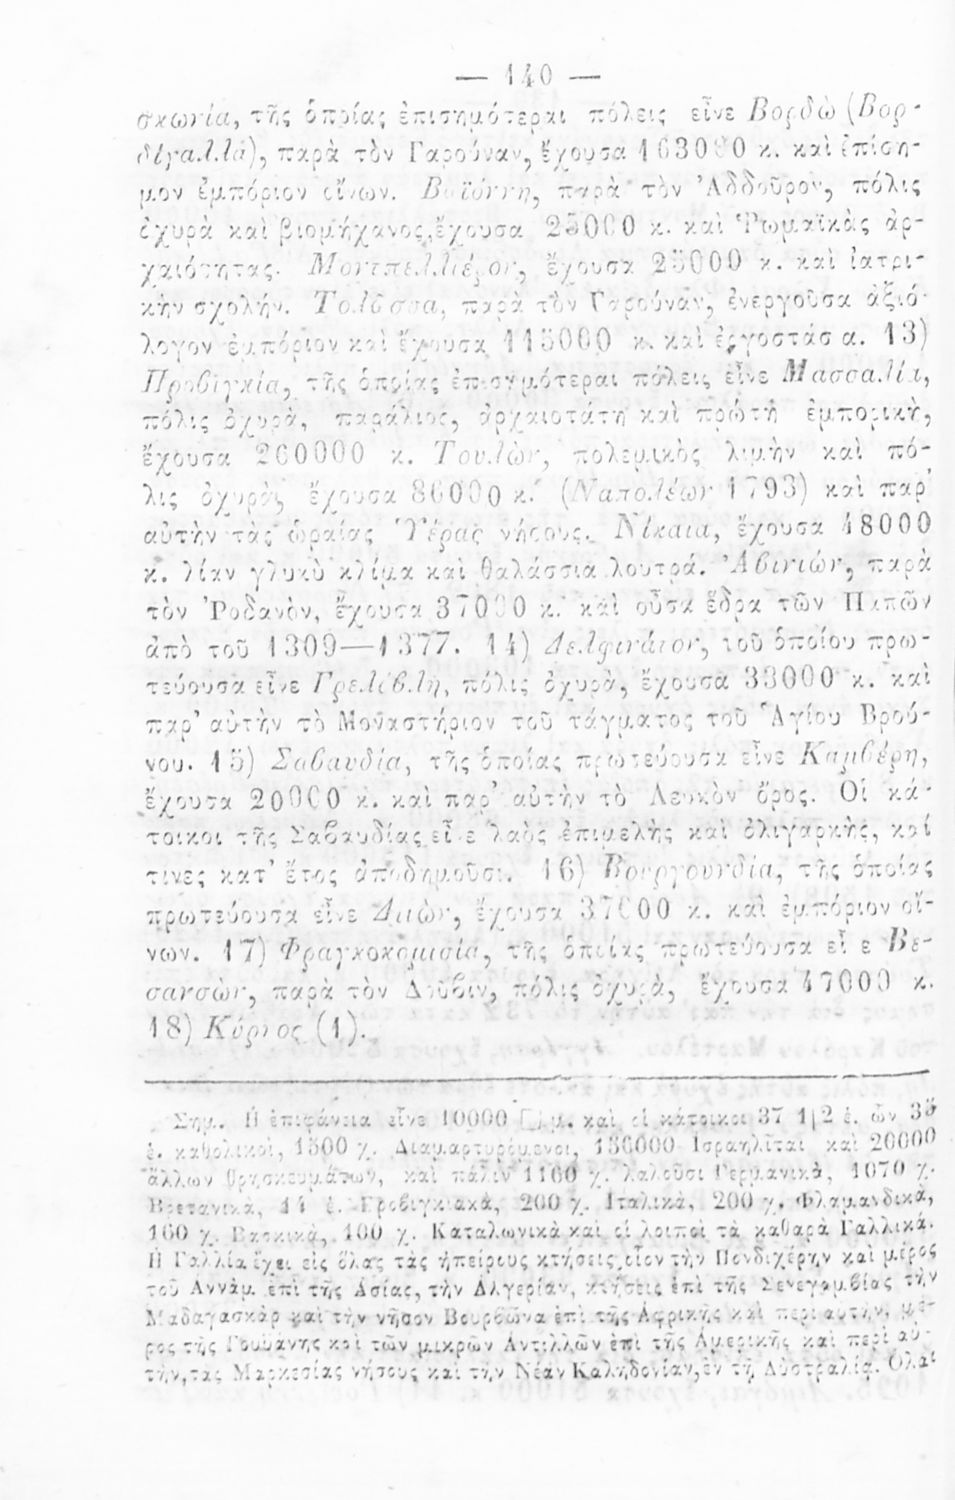 — 140 —
σκωνία, τῆς ὁποίας ἐπισημότεραι πόλεις εἶνε Βορδὼ (Βορ-
διγαλλά), παρὰ τὸν Γαρούναν, ἔχουσα 163000 κ. καὶ ἐπίση-
μον ἐμπόριον οἴνων. Βαϊόννη, παρὰ τὸν Ἀδδοῦρον, πόλις
ὀχυρὰ καὶ βιομήχανος, ἔχουσα 25000 κ. καὶ Ῥωμαϊκὰς ἀρ-
χαιότητας. Μοντπελλιέρον, ἔχουσα 25000 κ. καὶ ἰατρι-
κὴν σχολήν. Τολῶσσα, παρὰ τὸν Γαρούναν, ἐνεργοῦσα ἀξιό-
λογον ἐμπόριον καὶ ἔχουσα 115000 κ. καὶ ἐργοστάσια. 13)
Προβιγκία, τῆς ὁποίας ἐπισημότεραι πόλεις εἶνε Μασσαλία,
πόλις ὀχυρὰ, παράλιος, ἀρχαιοτάτη καὶ πρώτη ἐμπορικὴ,
ἔχουσα 260000 κ. Τουλὼν, πολεμικὸς λιμὴν καὶ πό-
λις ὀχυρὰ, ἔχουσα 86000 κ. (Ναπολέων 1793) καὶ παρ'
αὐτὴν τὰς ὡραίας Ὑέρας νήσους. Νίκαια, ἔχουσα 48000
κ. λίαν γλυκὺ κλίμα καὶ θαλάσσια λουτρά. Ἀβινιὼν, παρὰ
τὸν Ῥοδανὸν, ἔχουσα 37000 κ. καὶ οὖσα ἕδρα τῶν Παπῶν
ἀπὸ τοῦ 1309—1377. 14) Δελφινάτον, τοῦ ὁποίου πρω-
τεύουσα εἶνε Γρελόβλη, πόλις ὀχυρὰ, ἔχουσα 33000 κ. καὶ
παρ' αὐτὴν τὸ Μοναστήριον τοῦ τάγματος τοῦ Ἁγίου Βρού-
νου. 15) Σαβαυδία, τῆς ὁποίας πρωτεύουσα εἶνε Καμβέρη,
ἔχουσα 20000 κ. καὶ παρ' αὐτὴν τὸ Λευκὸν ὄρος. Οἱ κά-
τοικοι τῆς Σαβαυδίας εἶνε λαὸς ἐπιμελὴς καὶ ὀλιγαρκὴς, καί
τινες κατ' ἔτος ἀποδημοῦσι. 16) Βουργουνδία, τῆς ὁποίας
πρωτεύουσα εἶνε Διὼν, ἔχουσα 37000 κ. καὶ ἐμπόριον οἴ-
νων. 17) Φραγκοκομισία, τῆς ὁποίας πρωτεύουσα εἶ ε Βε-
σανσὼν, παρὰ τὸν Δοῦβιν, πόλις ὀχυρὰ, ἔχουσα 47000 κ.
18) Κύρνος (1).
Σημ. Ἡ ἐπιφάνεια εἶνε 10000 □ μ. καὶ οἱ κάτοικοι 37 1|2 ἑ. ὧν 35
ἑ. καθολικοὶ, 1500 χ. Διαμαρτυρόμενοι, 156000 Ισραηλῖται καὶ 20000
ἄλλων θρησκευμάτων, καὶ πάλιν 1160 χ. λαλοῦσι Γερμανικὰ, 1070 χ.
Βρετανικὰ, 14 ἑ. Προβιγκιακὰ, 200 χ. Ιταλικὰ, 200 χ. Φλαμανδικὰ,
160 χ. Βασκικὰ, 100 χ. Καταλωνικὰ καὶ οἱ λοιποὶ τὰ καθαρὰ Γαλλικά.
Η Γαλλία ἔχει εἰς ὅλας τὰς ἠπείρους κτήσεις οἷον τὴν Πονδιχέρην καὶ μέρος
τοῦ Αννὰμ ἐπὶ τῆς Ασίας, τὴν Αλγερίαν, κτήσεις ἐπὶ τῆς Σενεγαμβίας τὴν
Μαδαγασκὰρ καὶ τὴν νῆσον Βουρβῶνα ἐπὶ τῆς Αφρικῆς καὶ περὶ αὐτὴν, μέ-
ρος τῆς Γουϋάνης καὶ τῶν μικρῶν Αντιλλῶν ἐπὶ τῆς Αμερικῆς καὶ περὶ αὐ-
τὴν, τὰς Μαρκεσίας νήσους καὶ τὴν Νέαν Καληδονίαν, ἐν τῇ Αὐστραλίᾳ. Ολαι